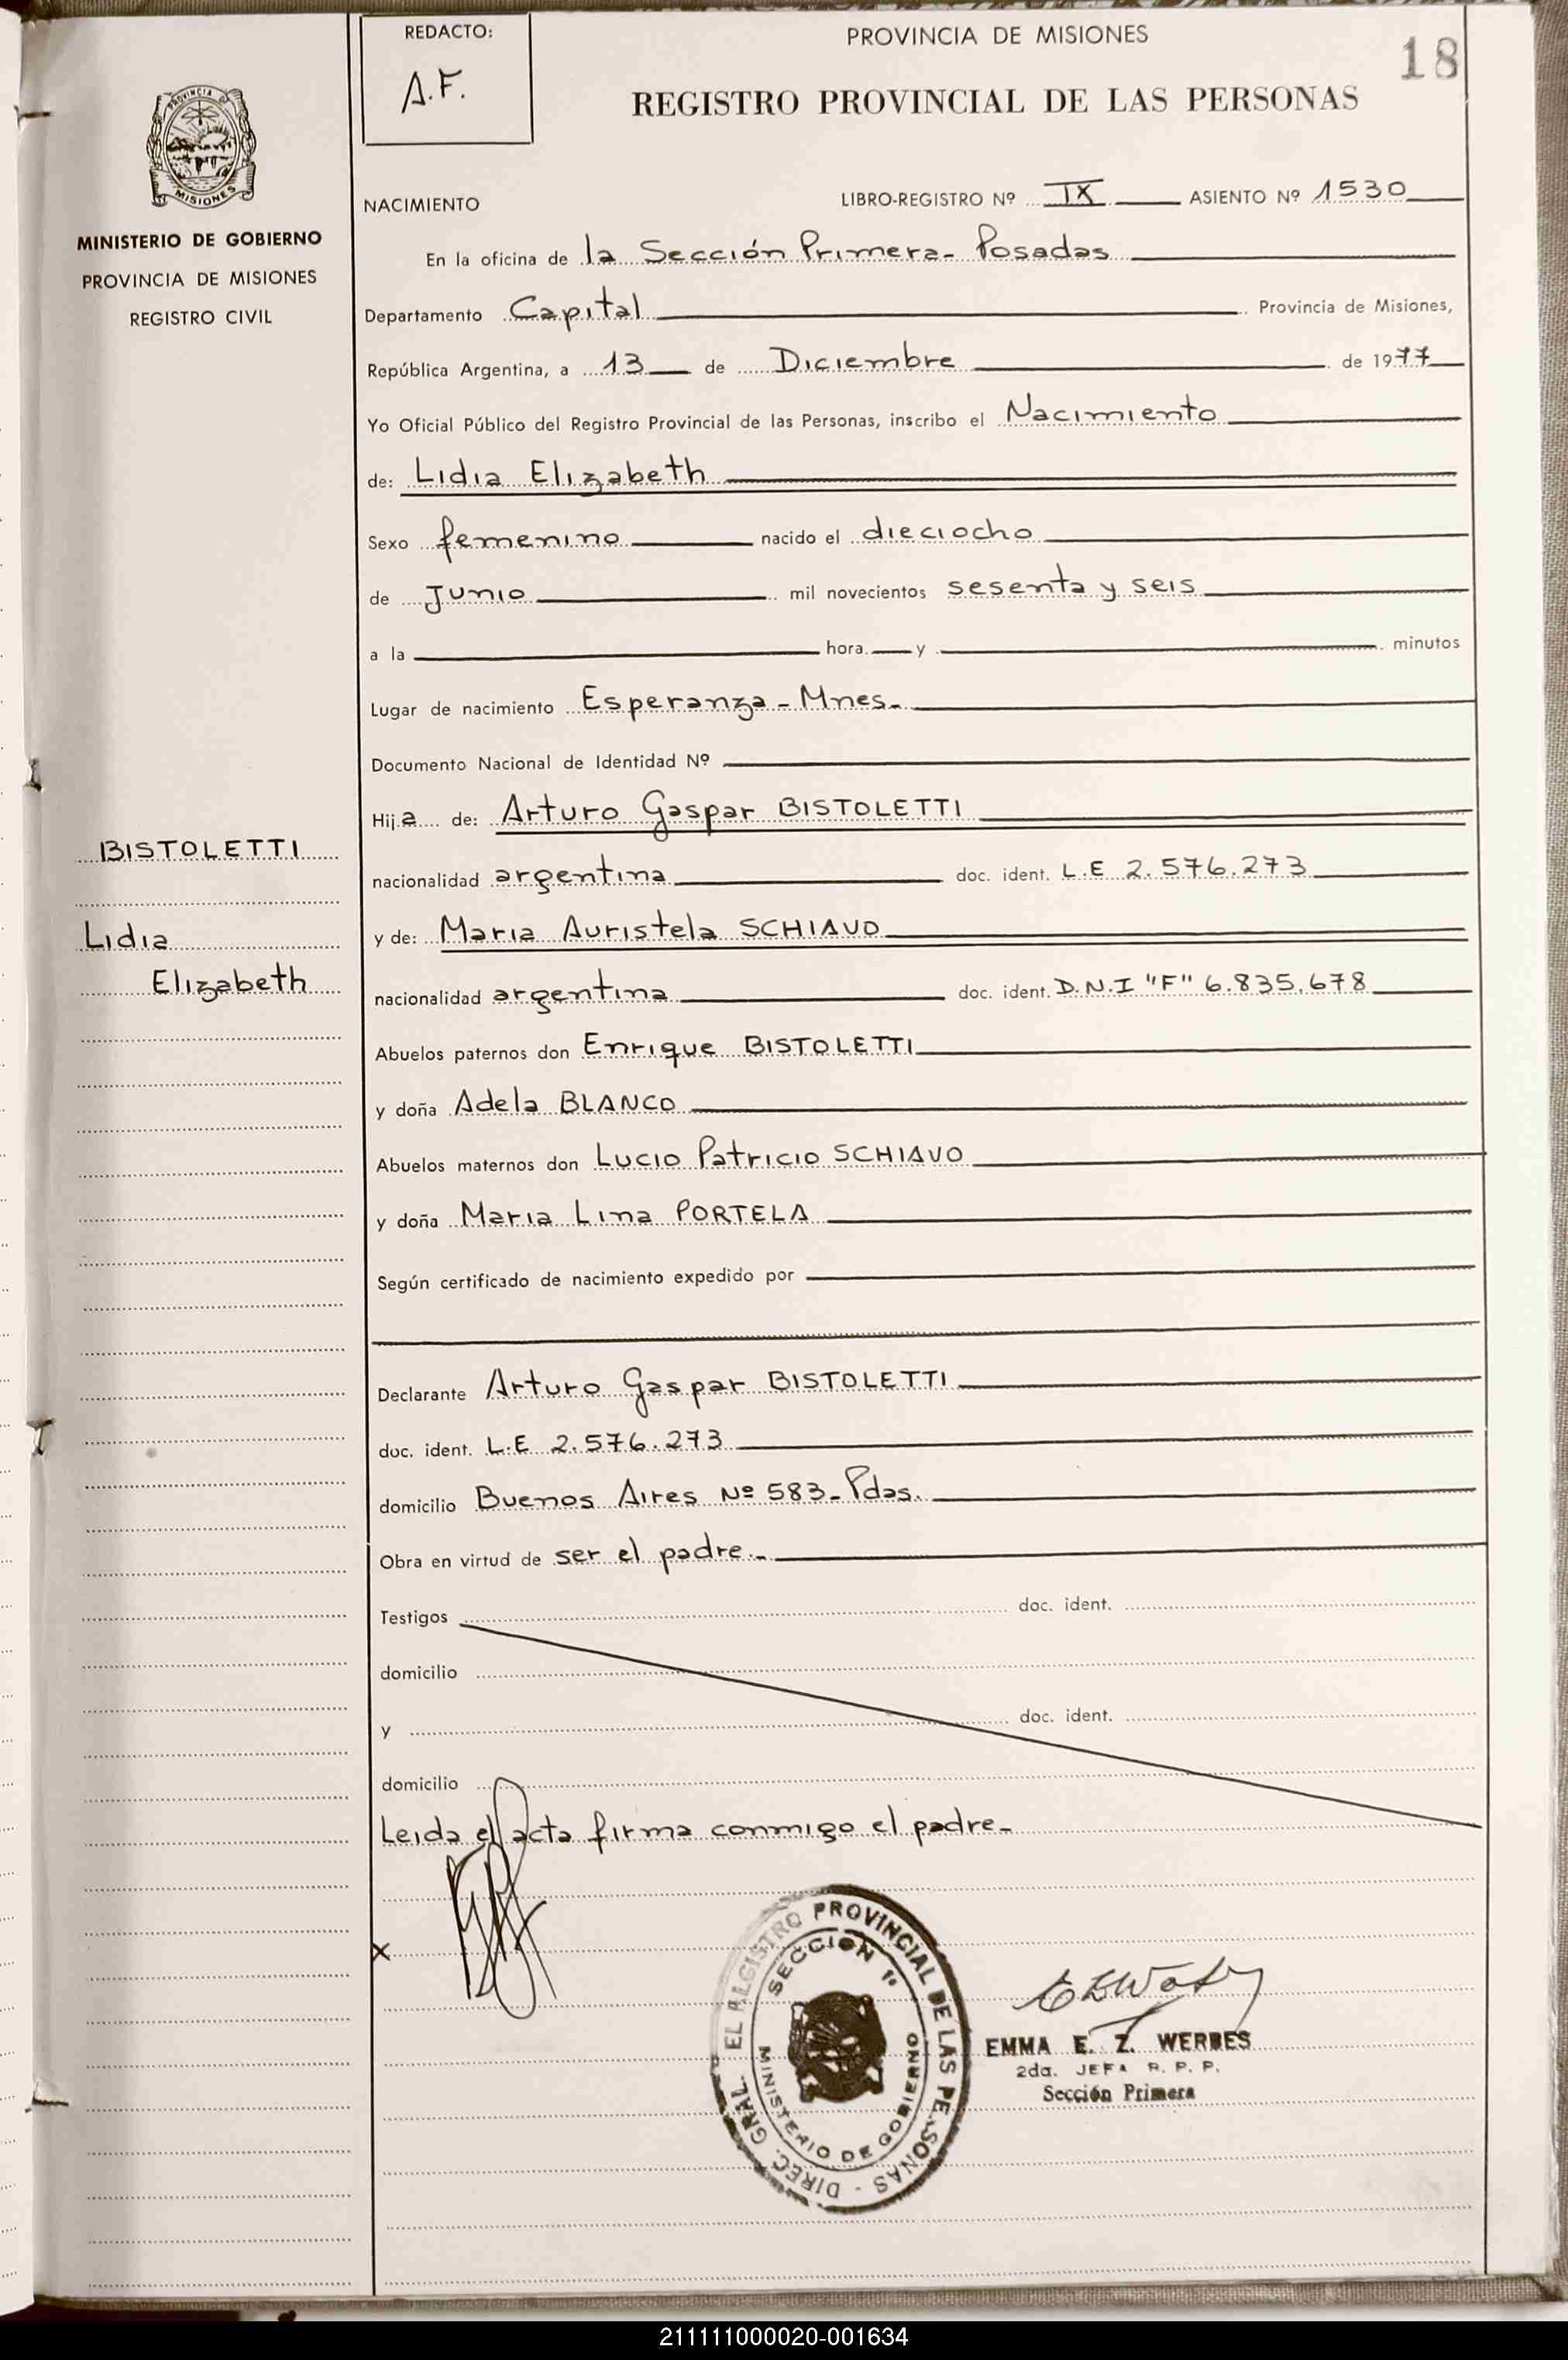 REDACTO:
A.F.
PROVINCIA DE MISIONES
18
REGISTRO PROVINCIAL DE LAS PERSONAS
PROVINCIA DE
MISIONES
MINISTERIO DE GOBIERNO
PROVINCIA DE MISIONES
REGISTRO CIVIL
NACIMIENTO LIBRO-REGISTRO Nº IX ASIENTO Nº 1530
En la oficina de la Sección Primera- Posadas
Departamento Capital Provincia de Misiones,
República Argentina, a 13 de Diciembre de 1977
Yo Oficial Público del Registro Provincial de las Personas, inscribo el Nacimiento
de: Lidia Elizabeth
Sexo femenino nacido el dieciocho
de Junio mil novecientos sesenta y seis
a la hora y minutos
Lugar de nacimiento Esperanza - Mnes.
Documento Nacional de Identidad Nº
Hija de: Arturo Gaspar BISTOLETTI
nacionalidad argentina doc. ident. L.E 2.576.273
y de: Maria Auristela SCHIAVO
nacionalidad argentina doc. ident. D.N.I "F" 6.835.678
Abuelos paternos don Enrique BISTOLETTI
y doña Adela BLANCO
Abuelos maternos don Lucio Patricio SCHIAVO
y doña Maria Lina PORTELA
Según certificado de nacimiento expedido por
Declarante Arturo Gaspar BISTOLETTI
doc. ident. L.E 2.576.273
domicilio Buenos Aires Nº 583- Pdas.
Obra en virtud de ser el padre.-
Testigos doc. ident.
domicilio
y doc. ident.
domicilio
Leida el acta firma conmigo el padre-
BISTOLETTI
Lidia
Elizabeth
x
DIREC. GRAL. EL REGISTRO PROVINCIAL DE LAS PERSONAS -
SECCION 1º
MINISTERIO DE GOBIERNO
EMMA E. Z. WERBES
2da. JEFA R. P. P.
Sección Primera
211111000020-001634